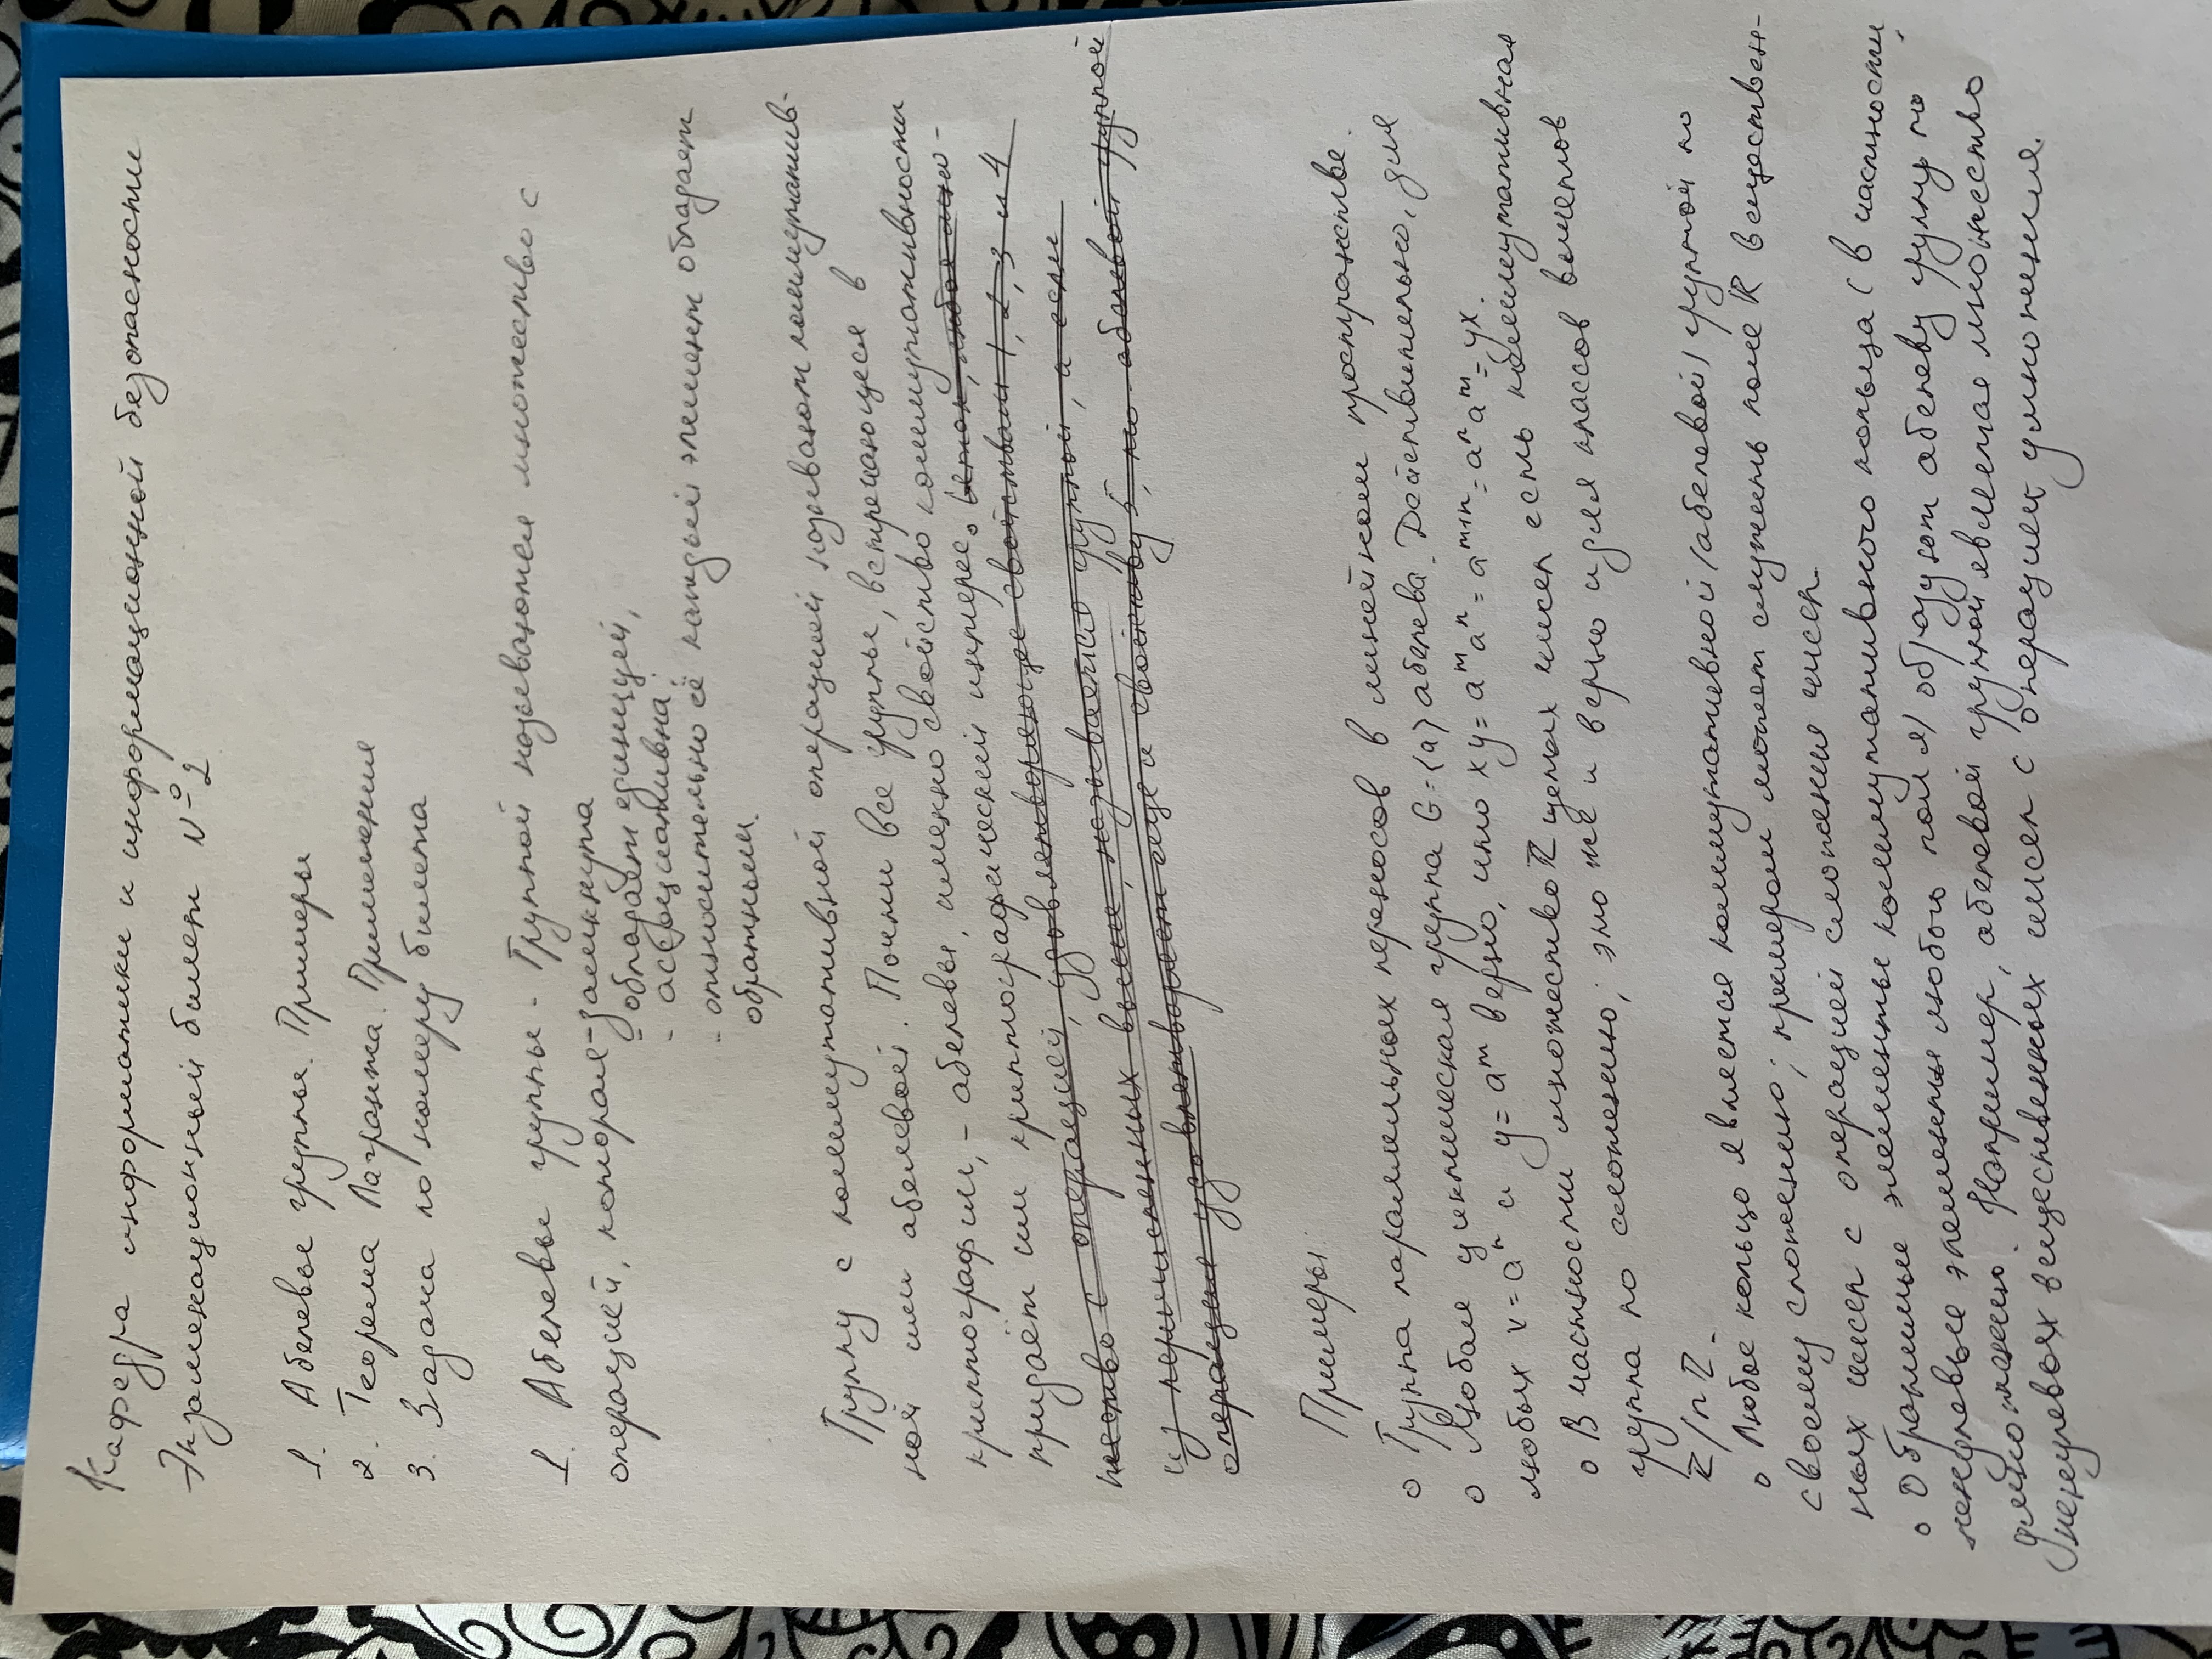 Кафедра информатики и информационной безопасности
Экзаменационный билет №2
1. Абелевы группы. Примеры
2. Теорема Лагранжа. Применения
3. Задача по номеру билета
1. Абелевы группы - Группой называются множество с
операцией, которая - замкнута
- обладает единицей,
- ассоциативна;
- относительно её каждый элемент обладает
обратным.
Группу с коммутативной операцией называют коммутатив-
ной или абелевой. Почти все группы, встречающиеся в
криптографии, - абелевы, именно свойство коммутативности
придаёт им криптографический интерес. Итак, любое мно-
жество с операцией, удовлетворяющее свойствам 1, 2, 3 и 4
из перечисленных выше, называется группой, а если
операция удовлетворяет еще и свойству 5, то - абелевой группой
Примеры:
о Группа параллельных переносов в линейном пространстве.
о Любая циклическая группа G=⟨a⟩ абелева. Действительно, для
любых x = aⁿ и y = aᵐ верно, что xy = aᵐaⁿ = aᵐ⁺ⁿ = aⁿaᵐ = yx.
о В частности множество ℤ целых чисел есть коммутативная
группа по сложению; это же и верно и для классов вычетов
ℤ/nℤ.
о Любое кольцо является коммутативной (абелевой) группой по
своему сложению; примером может служить поле ℝ веществен-
ных чисел с операцией сложения чисел.
о Обратимые элементы коммутативного кольца (в частности,
ненулевые элементы любого поля) образуют абелеву группу по
умножению. Например, абелевой группой является множество
ненулевых вещественных чисел с операцией умножения.